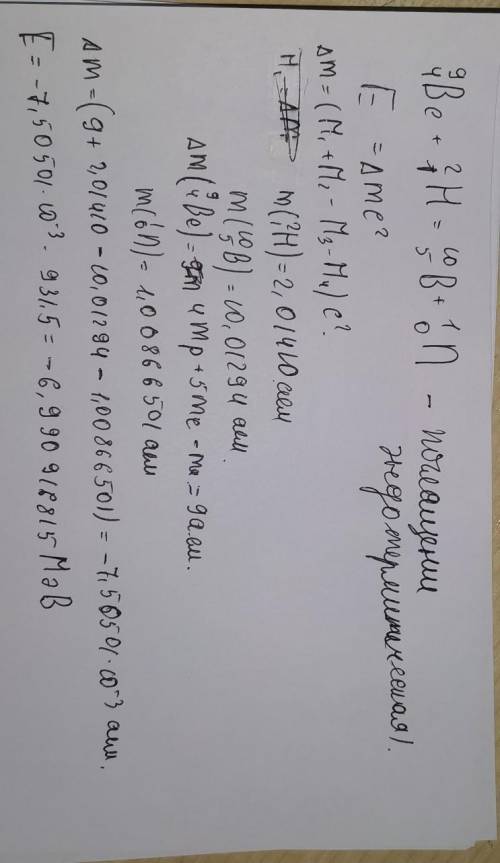 ⁹₄Be + ²₁H = ¹⁰₅B + ¹₀n – поглащении
эндотермическая).
E = Δmc²
Δm = (M₁ + M₂ - M₃ - M₄) c².
m(²₁H) = 2,01410 аем
m(¹⁰₅B) = 10,01294 аем.
Δm(⁹₄Be) = 4mp + 5me - mя = 9 а.ем.
m(¹₀n) = 1,00866501 аем
Δm = (9 + 2,01410 - 10,01294 - 1,00866501) = -7,50501·10⁻³ аем.
E = -7,50501·10⁻³ · 931,5 = -6,990918815 МэВ